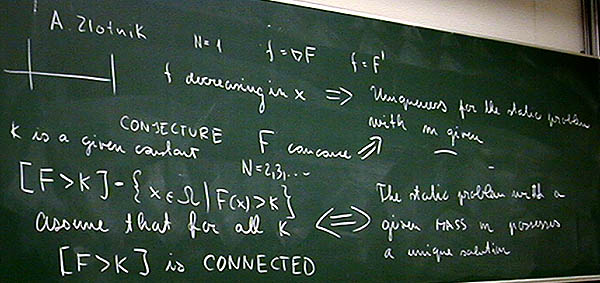 A. Zlotnik
N=1 f=∇F f=F'
f decreasing in x ⇒ Uniqueness for the static problem
with m given
CONJECTURE
K is a given constant
F concave ⇗
N=2,3,...
[F>K] = {x∈Ω | F(x)>K}
assume that for all K
[F>K] is CONNECTED
⇔
The static problem with a
given MASS m possesses
a unique solution